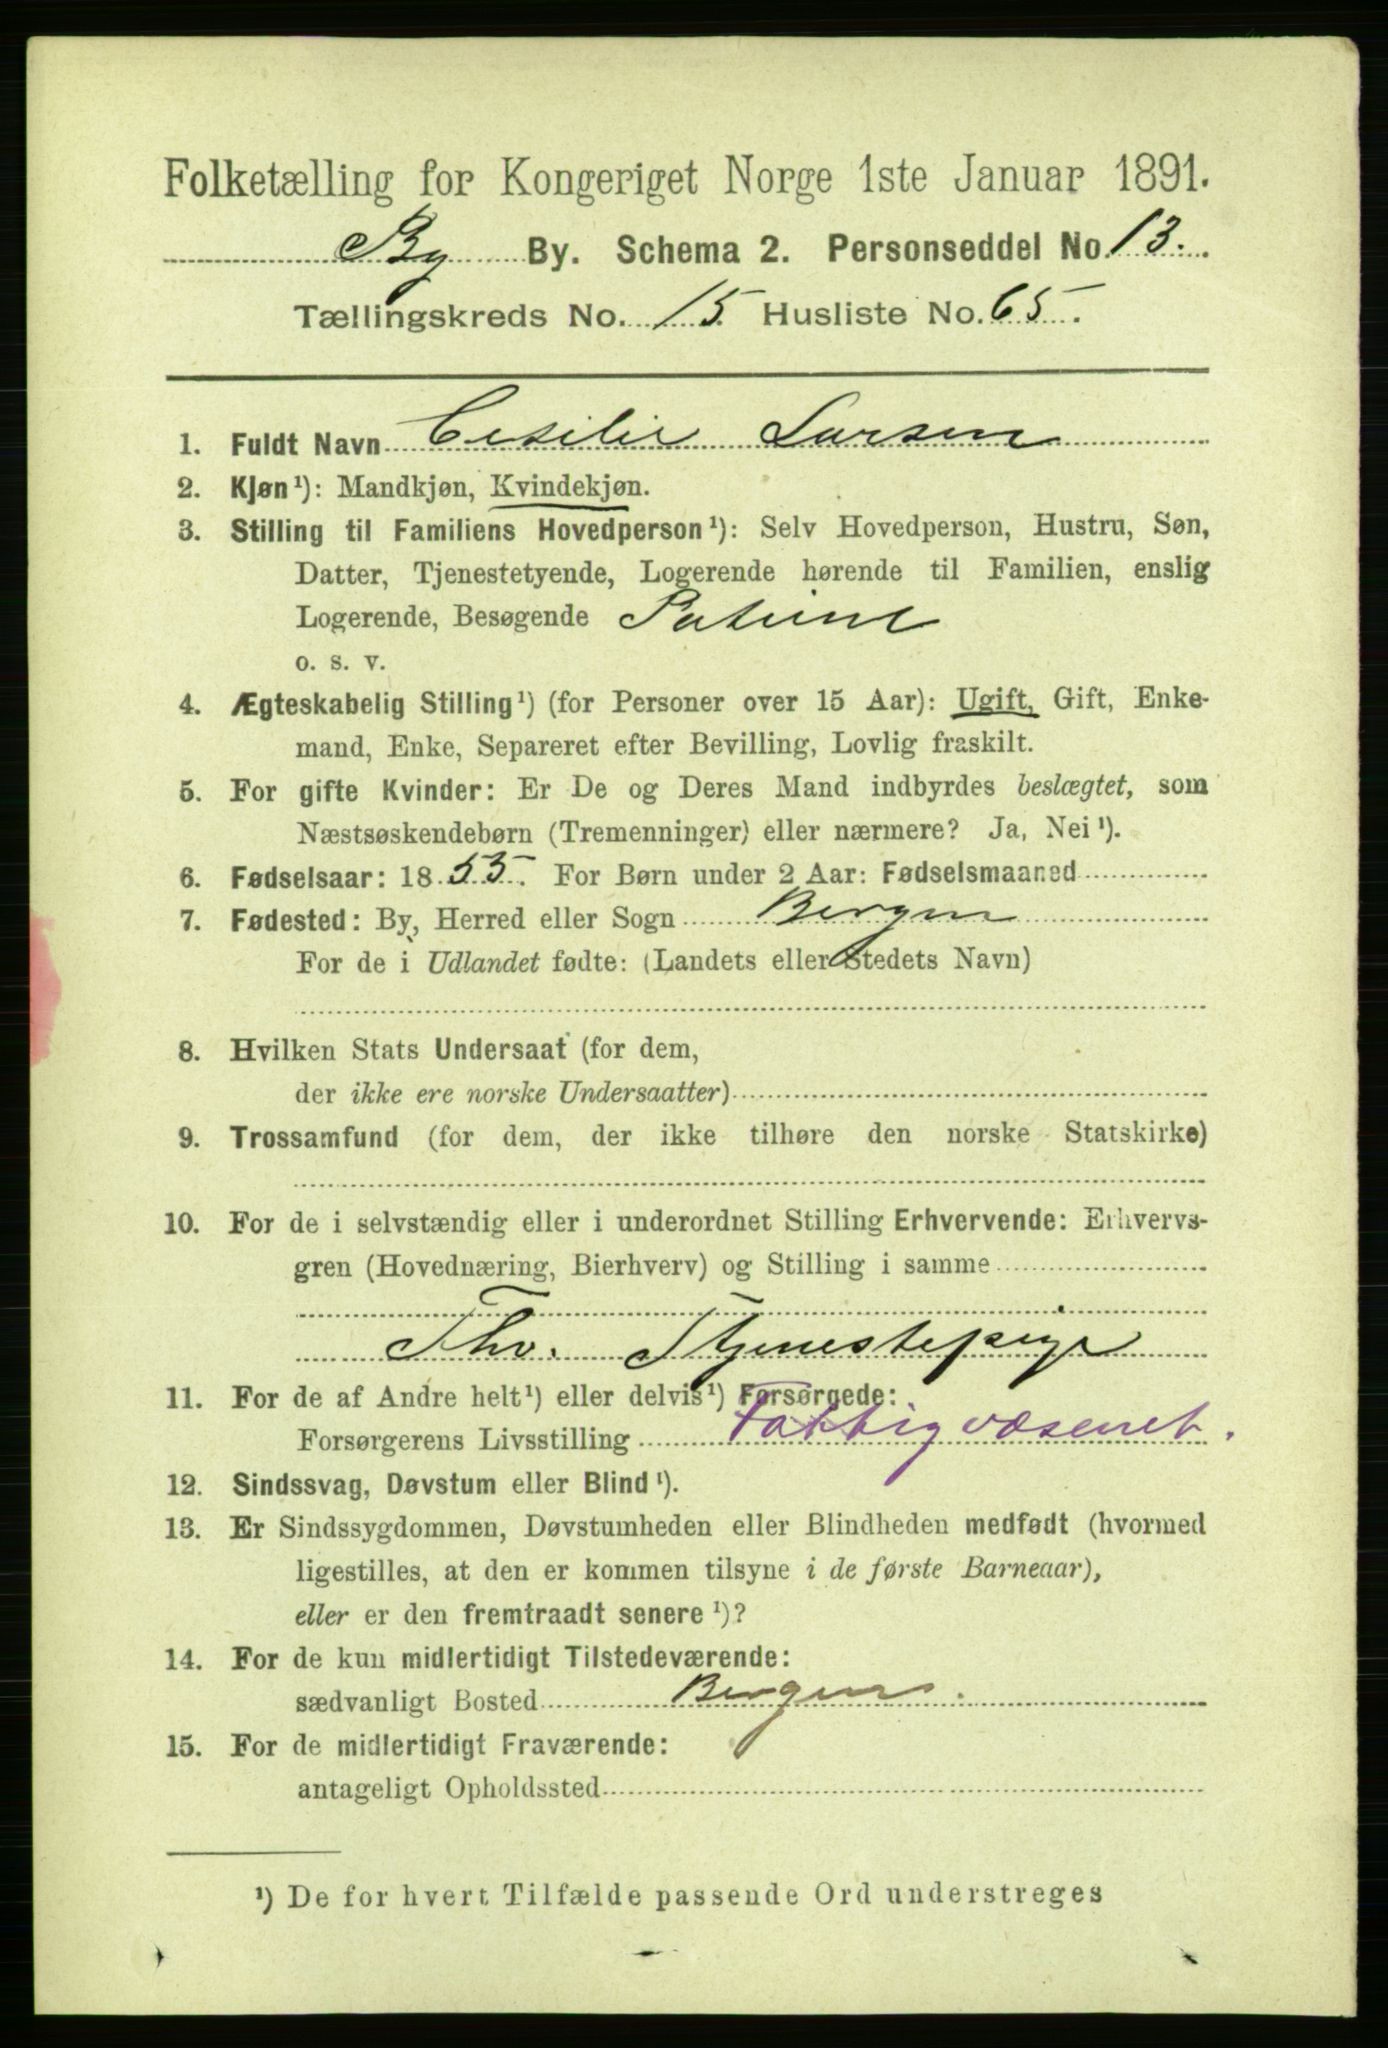 Folketælling for Kongeriget Norge 1ste Januar 1891.
By By. Schema 2. Personseddel No. 13.
Tællingskreds No. 15 Husliste No. 65.
1. Fuldt Navn Cesilie Larsen
2. Kjøn¹): Mandkjøn, Kvindekjøn.
3. Stilling til Familiens Hovedperson¹): Selv Hovedperson, Hustru, Søn,
Datter, Tjenestetyende, Logerende hørende til Familien, enslig
Logerende, Besøgende
o. s. v.
4. Ægteskabelig Stilling¹) (for Personer over 15 Aar): Ugift, Gift, Enke-
mand, Enke, Separeret efter Bevilling, Lovlig fraskilt.
5. For gifte Kvinder: Er De og Deres Mand indbyrdes beslægtet, som
Næstsøskendebørn (Tremenninger) eller nærmere? Ja, Nei¹).
6. Fødselsaar: 1853. For Børn under 2 Aar: Fødselsmaaned
7. Fødested: By, Herred eller Sogn Bergen
For de i Udlandet fødte: (Landets eller Stedets Navn)
8. Hvilken Stats Undersaat (for dem,
der ikke ere norske Undersaatter)
9. Trossamfund (for dem, der ikke tilhøre den norske Statskirke)
10. For de i selvstændig eller i underordnet Stilling Erhvervende: Erhvervs-
gren (Hovednæring, Bierhverv) og Stilling i samme
Fhv. Tjenestepige
11. For de af Andre helt¹) eller delvis¹) Forsørgede:
Forsørgerens Livsstilling Fattigvæsenet.
12. Sindssvag, Døvstum eller Blind¹).
13. Er Sindssygdommen, Døvstumheden eller Blindheden medfødt (hvormed
ligestilles, at den er kommen tilsyne i de første Barneaar),
eller er den fremtraadt senere¹)?
14. For de kun midlertidigt Tilstedeværende:
sædvanligt Bosted Bergen.
15. For de midlertidigt Fraværende:
antageligt Opholdssted
¹) De for hvert Tilfælde passende Ord understreges